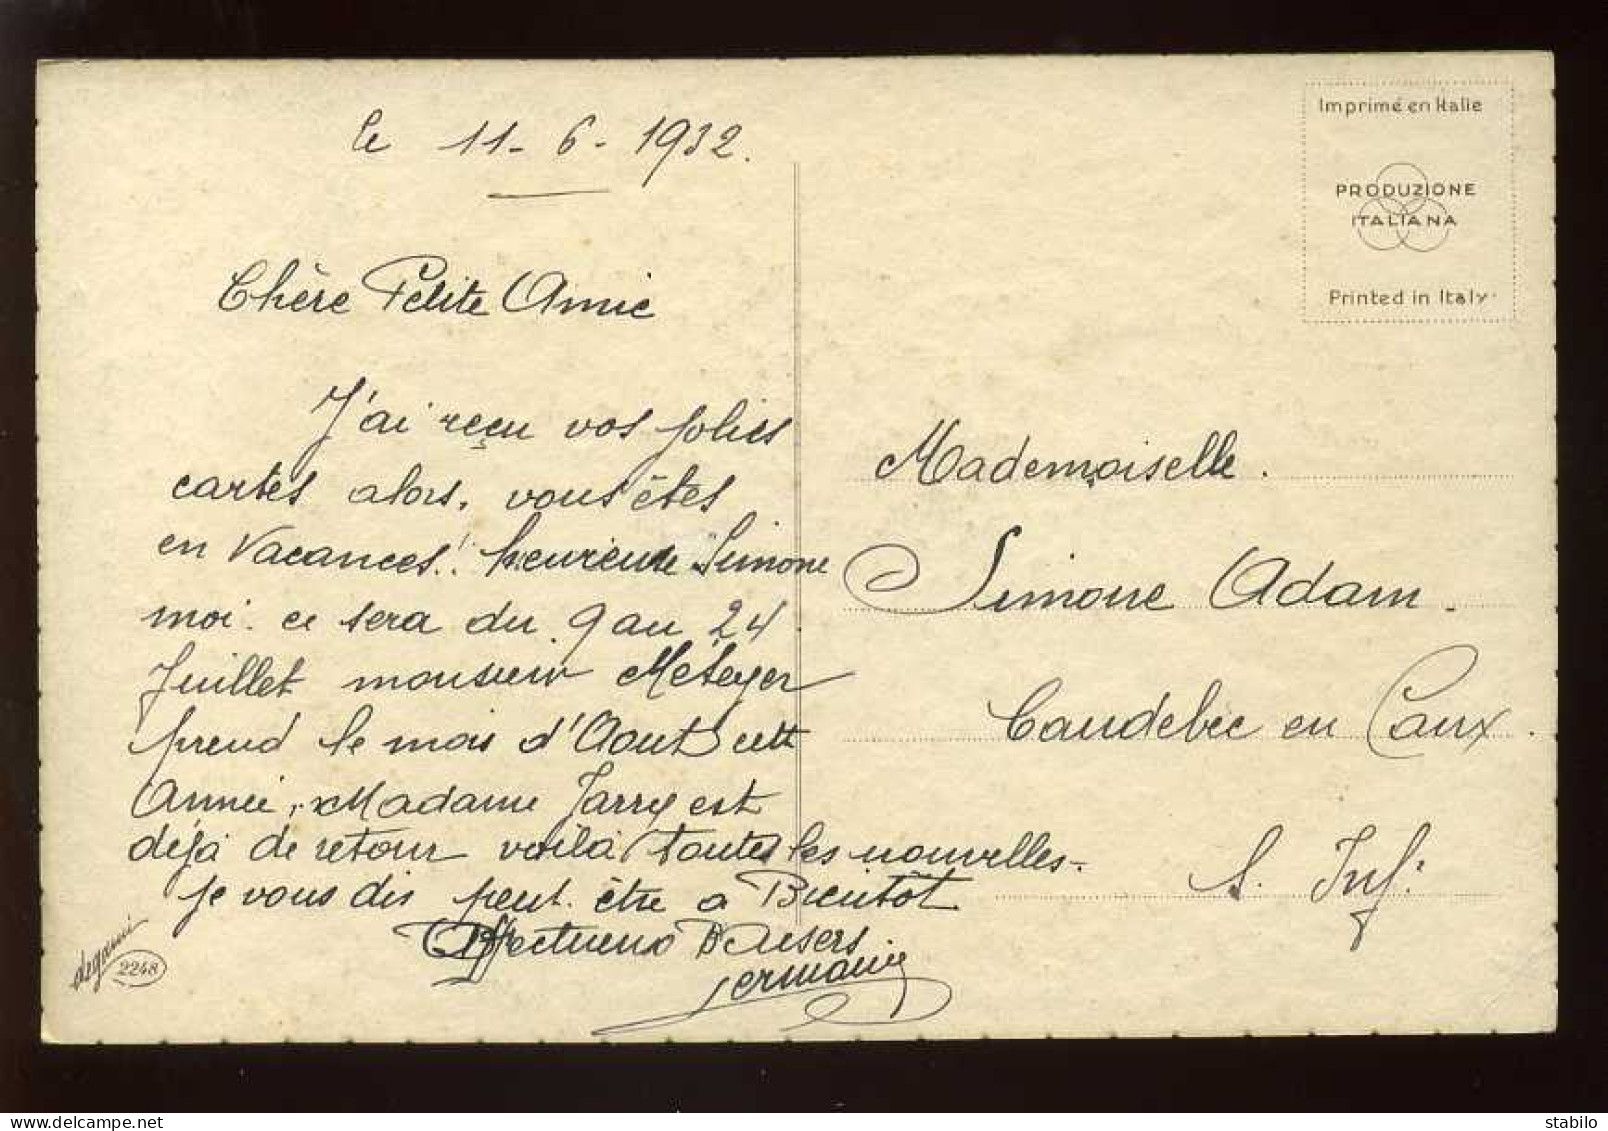 le 11-6-1932.
Chère Petite Amie
J'ai reçu vos jolies
cartes alors, vous êtes
en Vacances! heureuse Simone
moi. ce sera du 9 au 24
Juillet monsieur Méteyer
prend le mois d'Aout cette
Année, Madame Jarry est
déjà de retour voilà toutes les nouvelles.
je vous dis peut-être a Bientôt
Affectueux Baisers
Germaine
degami
2248
Imprimé en Italie
PRODUZIONE
ITALIANA
Printed in Italy
Mademoiselle.
Simone Adam.
Caudebec en Caux.
S. Inf.
delcampe.net
stabilo